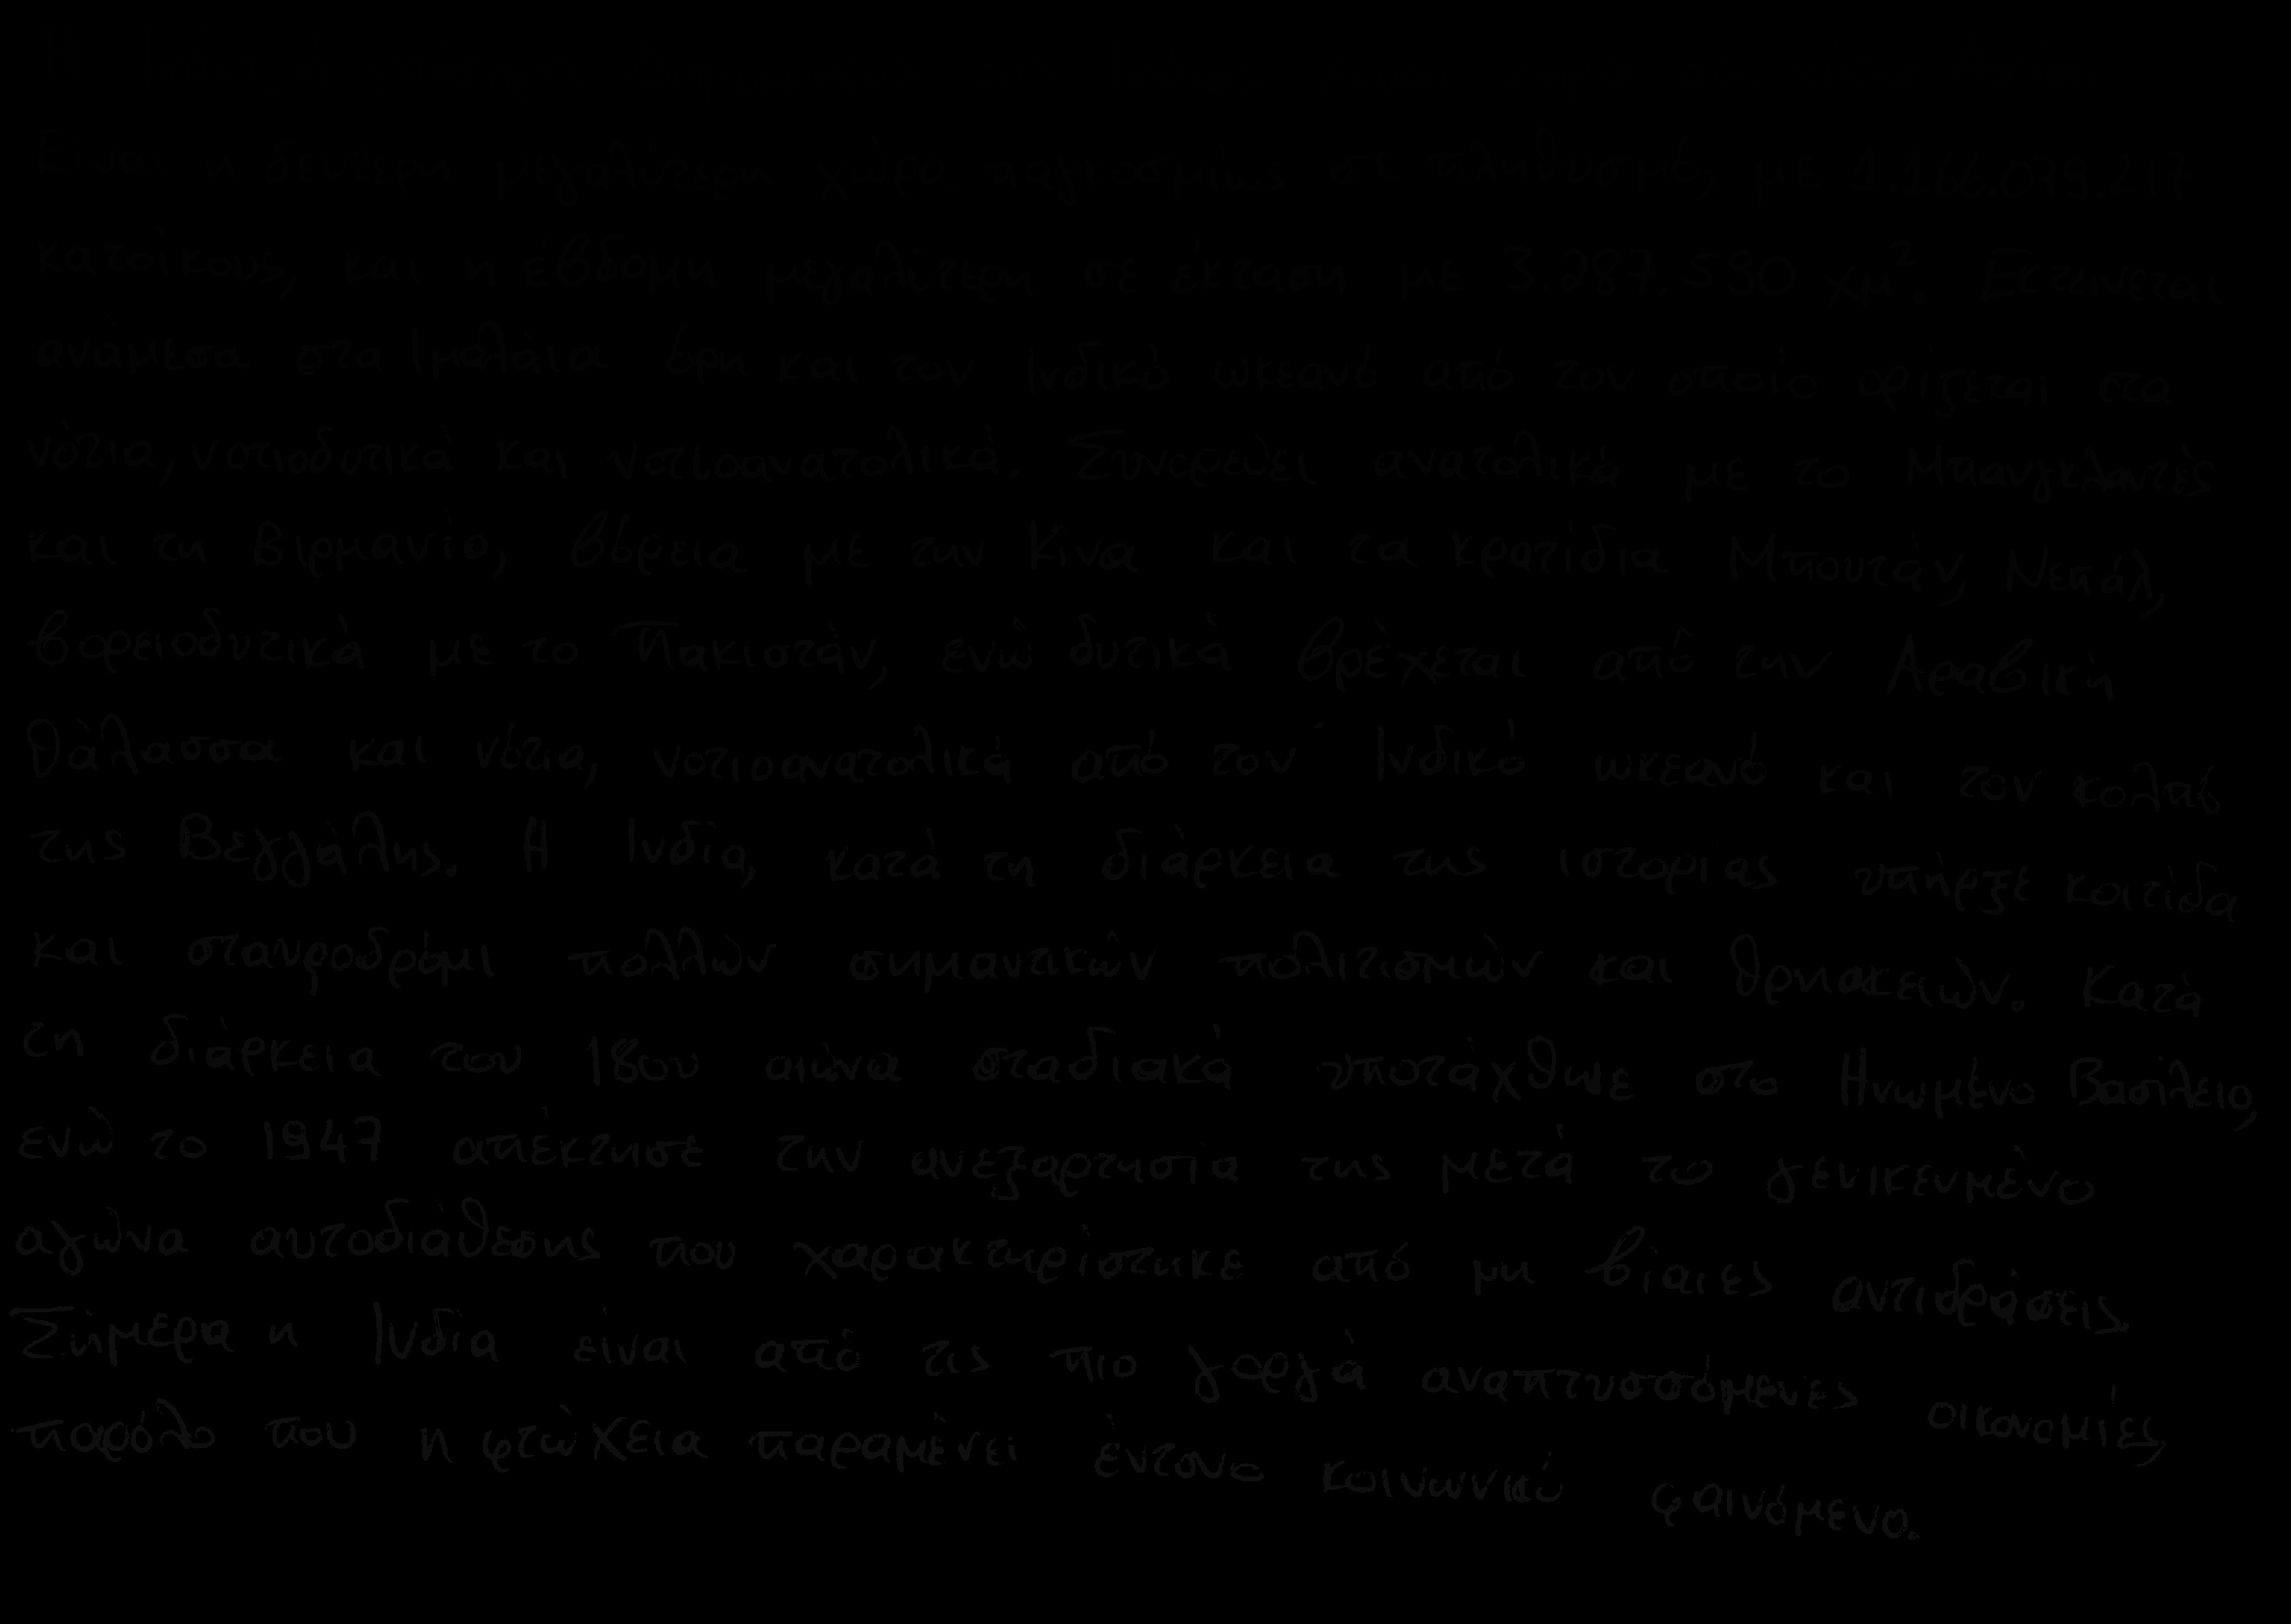 Η Ινδία ή επίσημα Δημοκρατία της Ινδίας είναι χώρα στη νότιο Ασία.
Είναι η δεύτερη μεγαλύτερη χώρα παγκοσμίως σε πληθυσμό, με 1.166.079.217
κατοίκους, και η έβδομη μεγαλύτερη σε έκταση με 3.287.590 χμ². Εκτείνεται
ανάμεσα στα Ιμαλάια όρη και τον Ινδικό ωκεανό από τον οποίο ορίζεται στα
νότια, νοτιοδυτικά και νοτιοανατολικά. Συνορεύει ανατολικά με το Μπανγκλαντές
και τη Βιρμανία, βόρεια με την Κίνα και τα κρατίδια Μπουτάν, Νεπάλ,
βορειοδυτικά με το Πακιστάν, ενώ δυτικά βρέχεται από την Αραβική
θάλασσα και νότια, νοτιοανατολικά από τον Ινδικό ωκεανό και τον κολπό
της Βεγγάλης. Η Ινδία, κατά τη διάρκεια της ιστορίας υπήρξε κοιτίδα
και σταυροδρόμι πολλών σημαντικών πολιτισμών και θρησκειών. Κατά
τη διάρκεια του 18ου αιώνα σταδιακά υποτάχθηκε στο Ηνωμένο Βασίλειο,
ενώ το 1947 απέκτησε την ανεξαρτησία της μετά το γενικευμένο
αγώνα αυτοδιάθεσης που χαρακτηρίστηκε από μη βίαιες αντιδράσεις.
Σήμερα η Ινδία είναι από τις πιο γοργά αναπτυσσόμενες οικονομίες,
παρόλο που η φτώχεια παραμένει έντονο κοινωνικό φαινόμενο.